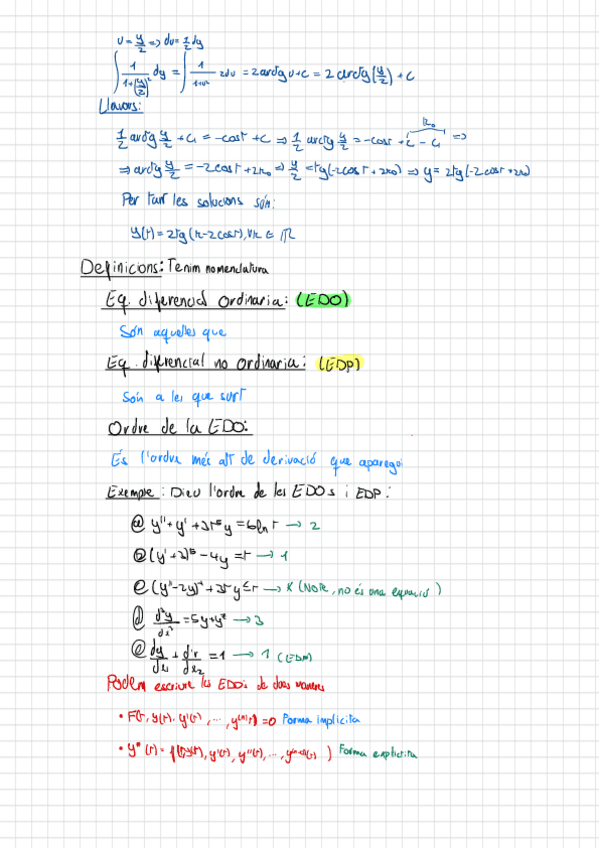 u = y/2 => du = 1/2 dy
∫ 1/(1+(y/2)²) dy = ∫ 1/(1+u²) 2du = 2 arctg u + c = 2 arctg(y/2) + c
Llavors:
1/2 arctg y/2 + c₁ = -cos t + c => 1/2 arctg y/2 = -cos t + c - c₁ =>
=> arctg y/2 = -2cos t + 2k₀ => y/2 = tg(-2cos t + 2k₀) => y = 2tg(-2cos t + 2k₀)
Per tant les solucions són:
y(t) = 2tg(k-2cos t), ∀k ∈ ℝ
Definicions: Tenim nomenclatura
Eq. diferencial Ordinaria: (EDO)
Són aquelles que
Eq. diferencial no Ordinaria: (EDP)
Són a les que surt
Ordre de la EDO:
És l'ordre més alt de derivació que aparego
Exemple: Dieu l'ordre de les EDOs i EDP:
ⓐ y'' + y' + 3t⁵y = 6ln t → 2
ⓑ (y' + 3)⁵ - 4y = t → 1
→ X (Note, no és una equació)
ⓓ = 5y + → 3
ⓔ = 1 → 1
Podem escriure les EDOs de dos maneres
• F(t, y(t), y'(t), ..., y⁽ⁿ⁾(t)) = 0 Forma implícita
• yⁿ(t) = f(t, y(t), y'(t), y''(t), ..., y⁽ⁿ⁻¹⁾(t)) Forma explícita